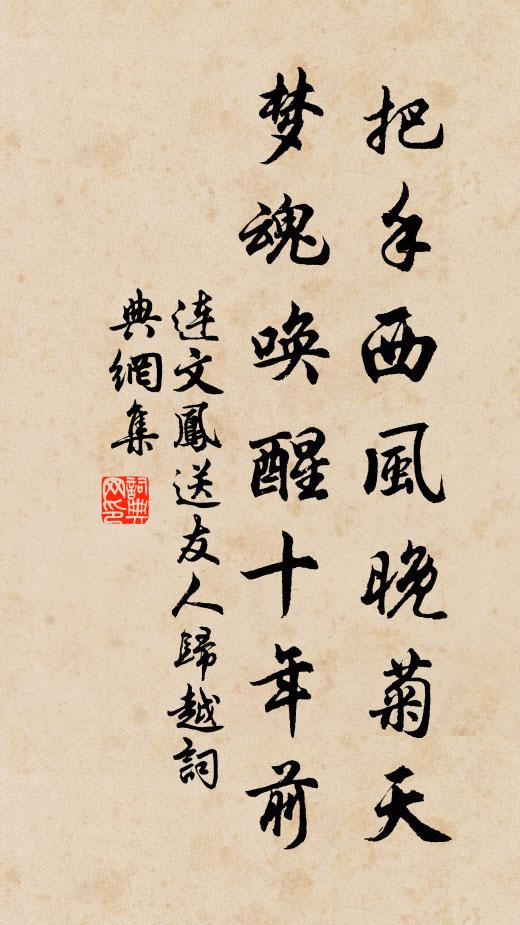 把手西風晚菊天
梦魂唤醒十年前
連文鳳送友人歸越詞
典網集
詞典网印